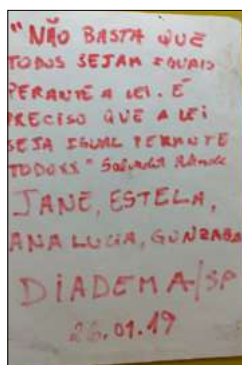 "NÃO BASTA QUE
TODOS SEJAM IGUAIS
PERANTE A LEI. É
PRECISO QUE A LEI
SEJA IGUAL PERANTE
TODOS." Salvador Allende
JANE, ESTELA,
ANA LUCIA, GONZAGA
DIADEMA/SP
26.01.19